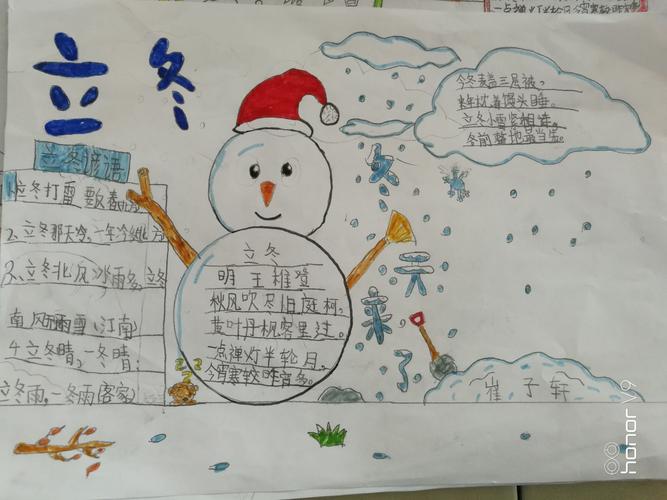 一点禅灯半轮月,今宵寒较昨宵
立冬
今冬麦盖三层被,
来年枕着馒头睡。
立冬小雪紧相连,
冬前整地最当先。
冬天来了
立冬谚语
1、立冬打雷要
2、立冬那天冷,一年冷
3、立冬北风冰雨多,立冬
南风雨雪(江南)
4、立冬晴,一冬晴;
立冬雨,一冬雨(客家)
立冬
明 王稚登
秋风吹尽旧庭柯,
黄叶丹枫客里过。
一点禅灯半轮月,
今宵寒较昨宵多。
zzz
崔子轩
honor V9